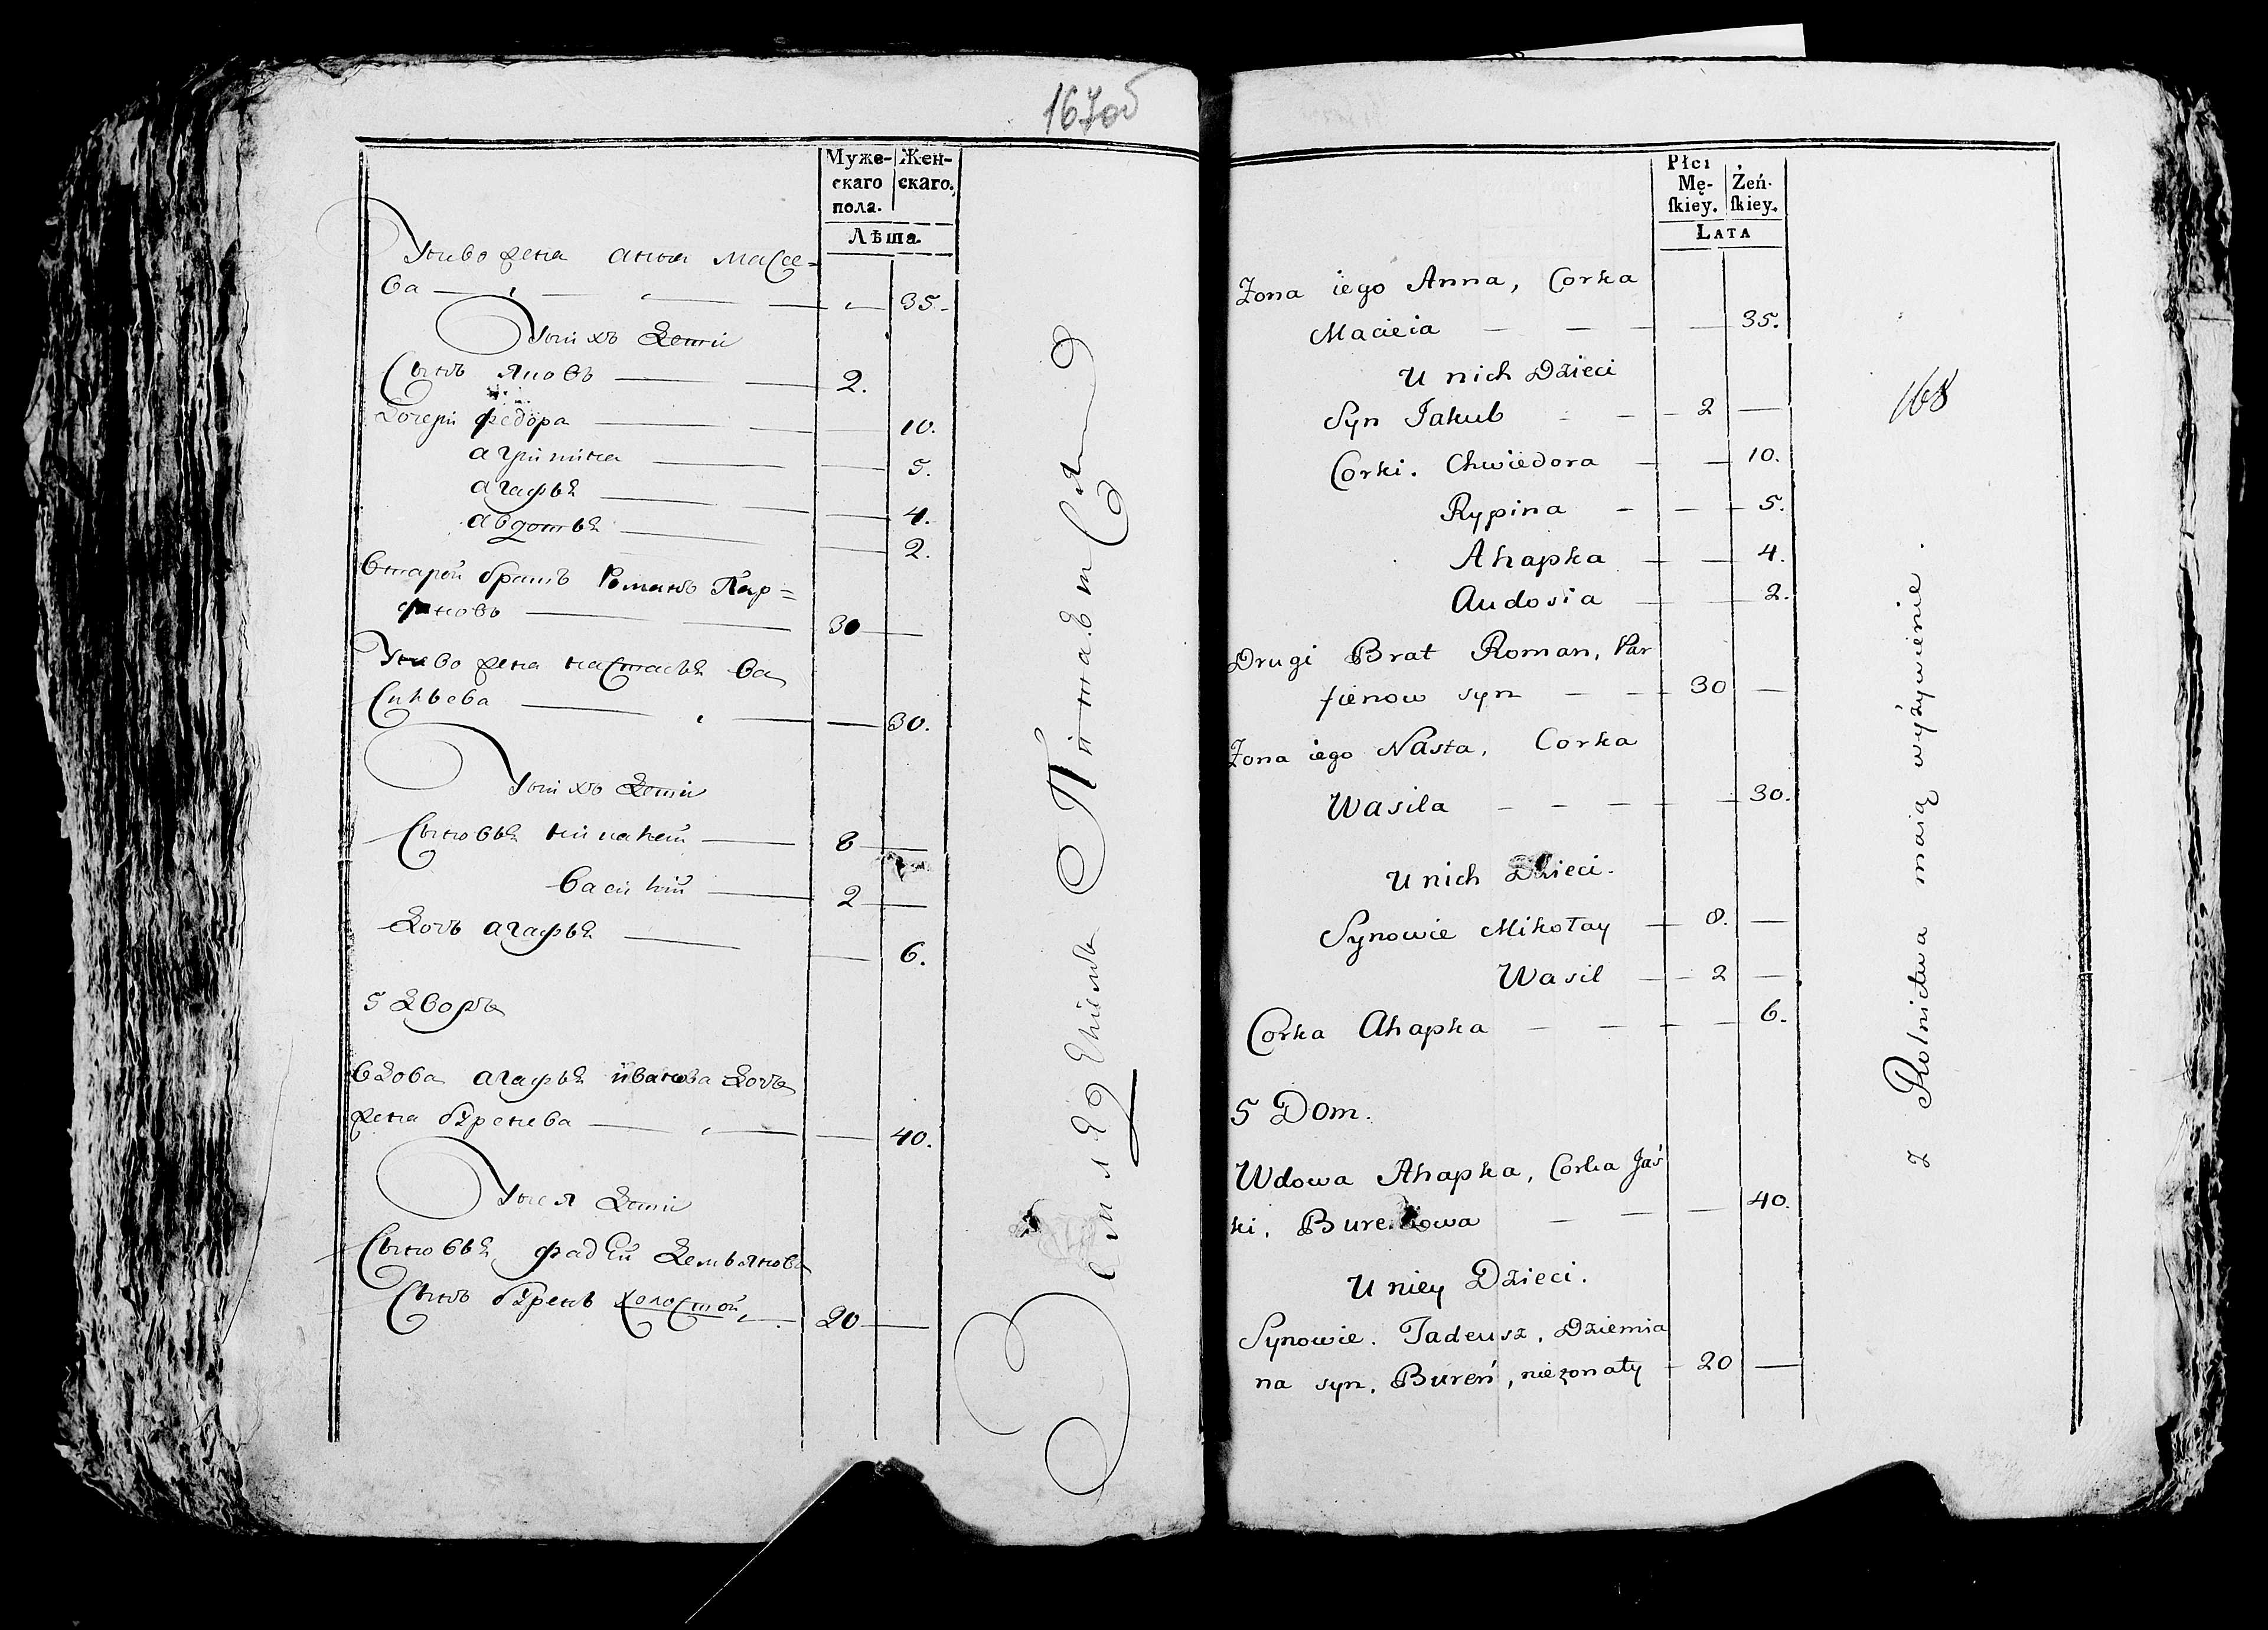 167об
Муже-
скаго
пола.
Жен-
скаго.
Лѣта.
У него жена анна Мосее=
ва 35.
У них дети
Сынъ Яковъ 2.
Дочери федора 10.
агрипина 5.
агафья 4.
авдотья 2.
Второй братъ Романъ Пар=
феновъ 30
У него жена настасья Ва
сильева 30.
У них дети
Сыновья николай 8
Василий 2
Дочь агафья 6.
5 Дворъ
Вдова агафья иванова дочь
жена бѹренева 40.
У нея дети
Сыновья фадей демьяновъ
Сынъ бѹрень холостой 20
Землед Питается
Płci
Mę-
skiey.
Żeń-
skiey.
Lata
Zona iego Anna, Corka
Macieia 35.
U nich Dzieci
Syn Jakub 2
Corki. Chwiedora 10.
Rypina 5.
Ahapka 4.
Audosia 2.
Drugi Brat Roman, Par
fienow syn 30
Zona iego Nasta, Corka
Wasila 30.
U nich Dzieci.
Synowie Mikołay 8.
Wasil 2
Corka Ahapka 6.
5 Dom.
Wdowa Ahapka, Corka Jaś
ki, Bureniowa 40.
U niey Dzieci.
Synowie. Tadeusz, Dziemia
na syn, Bureń, nieżonaty 20
168
z Rolnictwa maią wyżywienie.